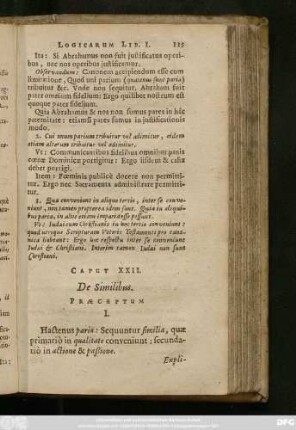 LOGICARUM LIB. I. 115
Ita: Si Abrahamus non fuit justificatus operi-
bus, nec nos operibus justificamur.
Observandum: Canonem accipiendum esse cum
limitatione, Quod uni parium (quatenus sunt paria)
tribuitur &c. Unde non sequitur, Abraham fuit
pater omnium fidelium: Ergo quilibet nostrum est
quoque pater fidelium.
Quia Abrahamus & nos non sumus pares in hac
paternitate: etiamsi pares sumus in justificationis
modo.
2. Cui unum parium tribuitur vel adimitur, eidem
etiam alterum tribuitur vel adimitur.
Ut: Communicantibus fidelibus omnibus panis
cœnæ Dominicæ porrigitur: Ergo iisdem & calix
debet porrigi.
Item: Fœminis publicè docere non permitti-
tur. Ergo nec Sacramenta administrare permitti-
tur.
3. Quæ conveniunt in aliquo tertio, inter se conve-
niunt, non tamen propterea idem sunt. Quia in aliqui-
bus paria, in aliis etiam imparia esse possunt.
Ut: Iudæi cum Christianis in hoc tertio conveniunt:
quod utrique Scripturam Veteris Testamenti pro cano-
nica habeant: Ergo hoc respectu inter se conveniunt
Iudæi & Christiani. Interim tamen Iudæi non sunt
Christiani.
CAPUT XXII.
De Similibus.
PRÆCEPTUM
I.
Hactenus paria: Sequuntur similia, quæ
primariò in qualitate conveniunt: secunda-
riò in actione & passione.
Expli-